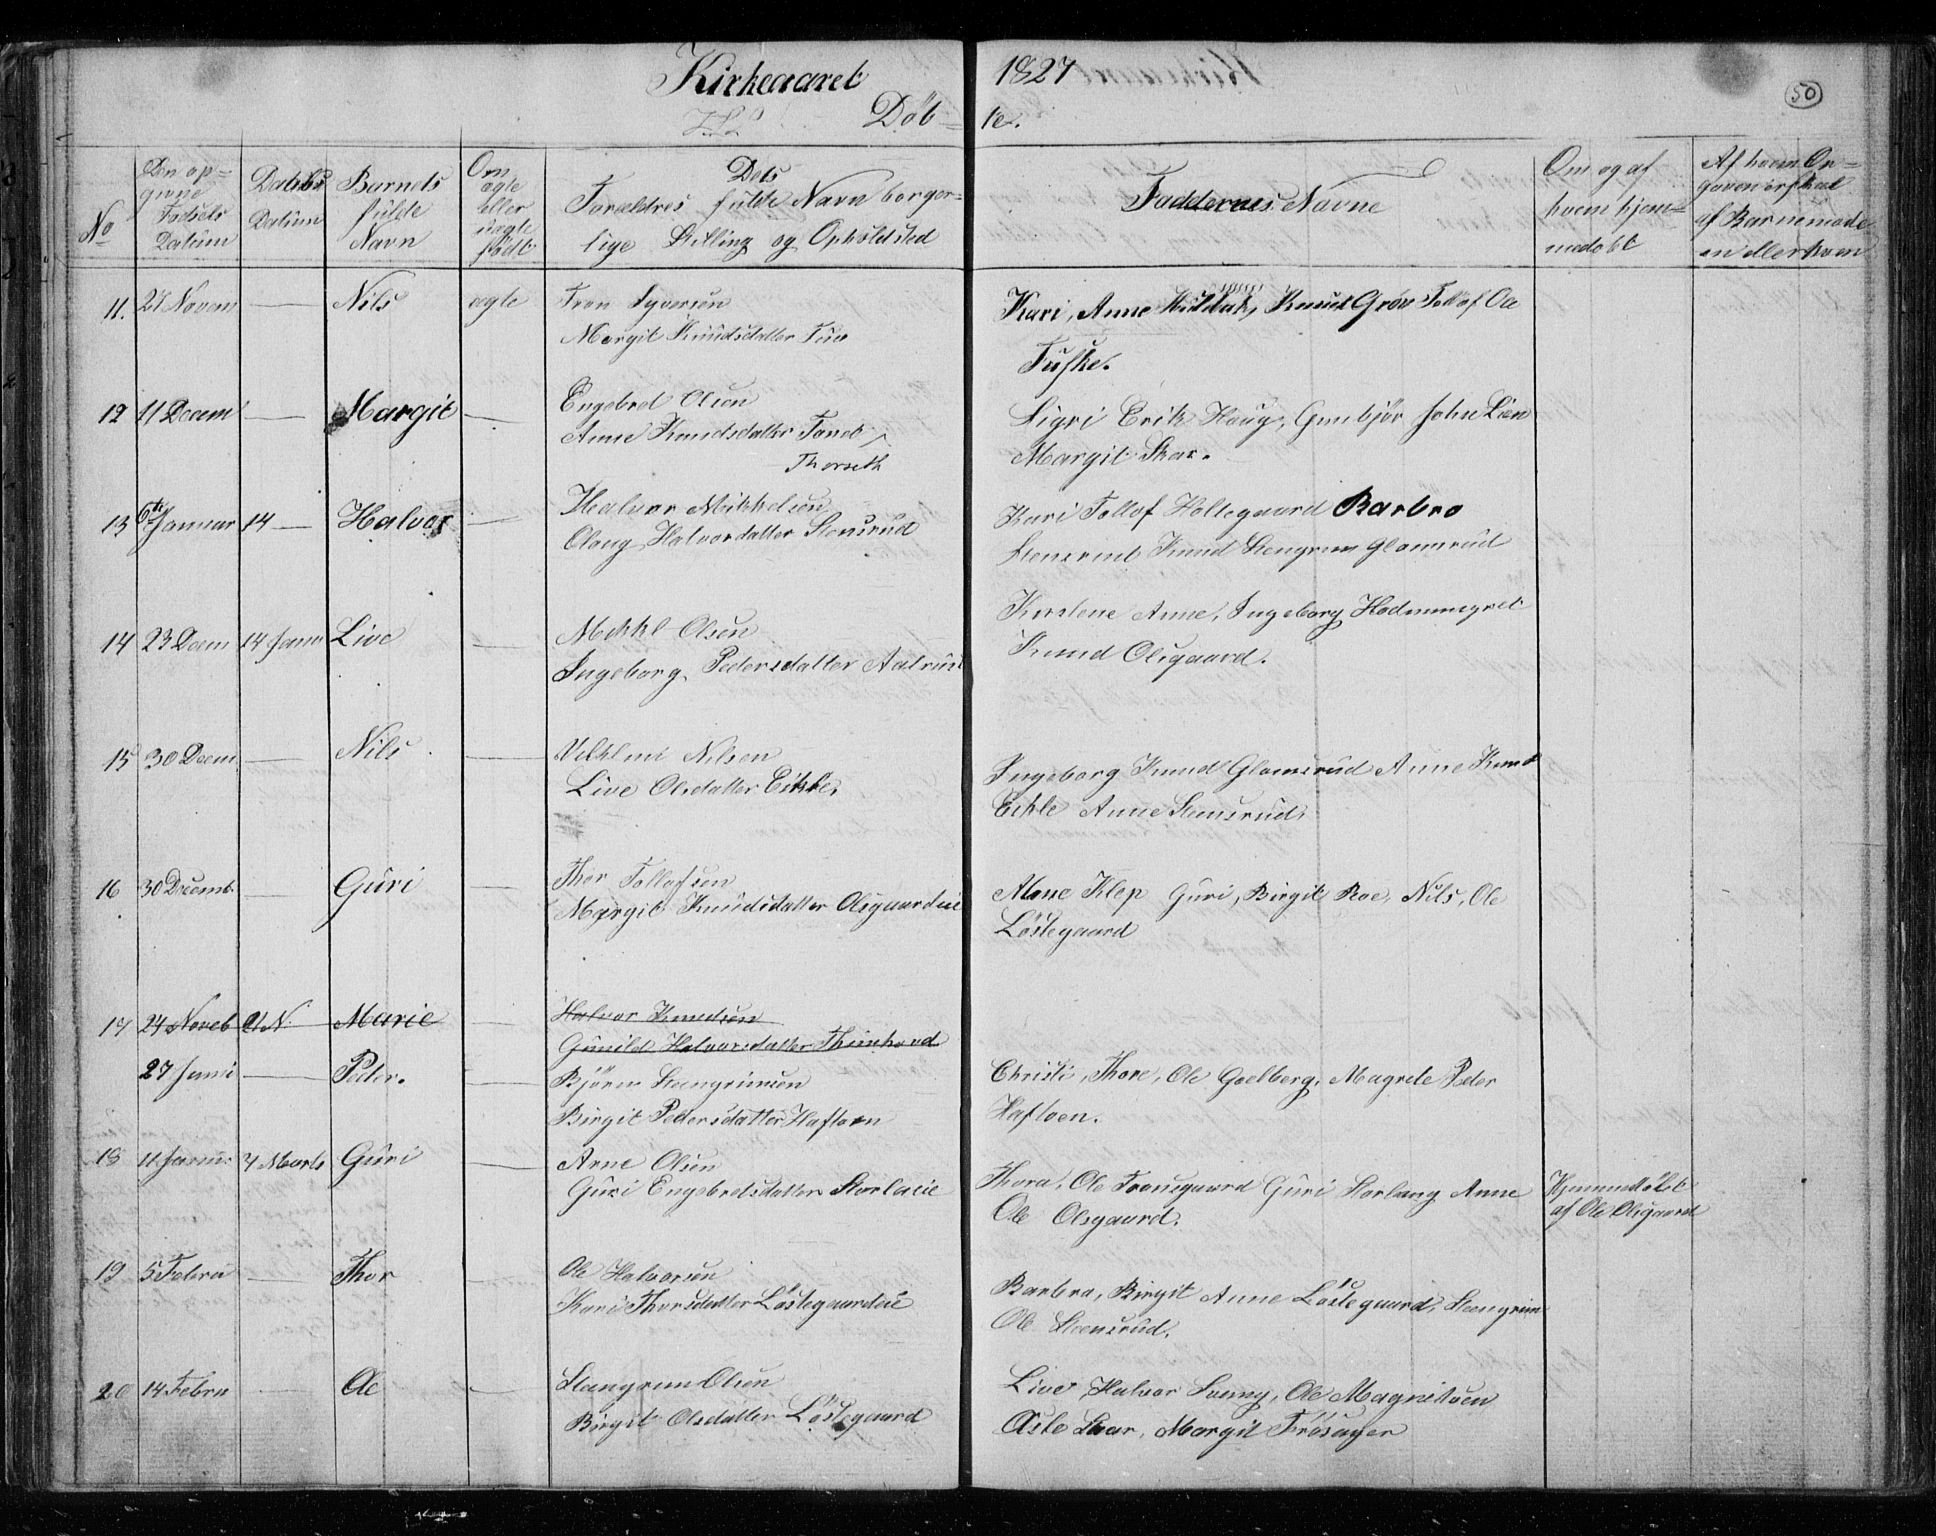 Kirkeaaret 1827
50
Döb= te.
No
Den op=
givne
Fødsels
Datum
Daabs
Datum
Barnets
fulde
Navn
Om
ægte
eller
uægte
født
Dets
Forældres fulde Navn borger=
lige Stilling og Opholdsted
Faddernes Navne
Om og af
hvem hjem=
medöbt
Af hvem
af Barnemode
en eller hvem
11. 27 Novem — Nils ægte Tron Syversen
Margit Knudsdatter
Kari, Anne Knud Grøv Tollof Ole
Tufske.
12 11 Decem — Margit — Engebret Olsen
Anne Knudsdatter
Thorseth
Sigri Erik Haug, Gunbjör John Lien
Margit Skar.
13 6te Januar 14 — Halvor — Halvor Mikkelsen
Olaug Halvordatter Stensrud
Kari Tollof Holtegaard Barbro
Stensrud Knud Stengrim Glomsrud
14 23 Decem 14 Janu Live — Mikkl Olsen
Ingeborg Pedersdatter
Anne, Ingeborg
Knud Olsgaard.
15 30 Decem — Nils — Nilsen
Live Olsdatter Eikle.
Ingeborg Knud Glomsrud Anne Knud
Eikle Anne Stensrud.
16 30 Decemb. — Guri — Thor Tollofsen
Margit Knudsdatter Olsgaardeie
Mone Klep Guri, Birgit Roe, Nils, Ole
Löstegaard
17 24 Noveb 21 N. Marie — Halvor Knudsen
Gunild Halvorsdatter
27 Janu — Peder. — Björn Stengrimsen
Birgit Pedersdatter Haftoen
Christi, Thore, Ole Goelberg, Magrete Peder
Haftoen.
18 11 Janu 4 Marts Guri — Arne Olsen
Guri Engebretsdatter
Thora, Ole Tronsgaard Guri Anne
Ole Olsgaard.
Hjemmedöbt
af Ole Olsgaard
19 5 Febru — Thor — Ole Halvorsen
Kari Thorsdatter Löstegaardeie
Barbra, Birgit Anne Löstegaard, Stengrim
Ole Steensrud.
20 14 Febru — Ole — Stengrim Olsen
Birgit Olsdatter Löstegaard
Live Halvor Ole
Margit Trösager